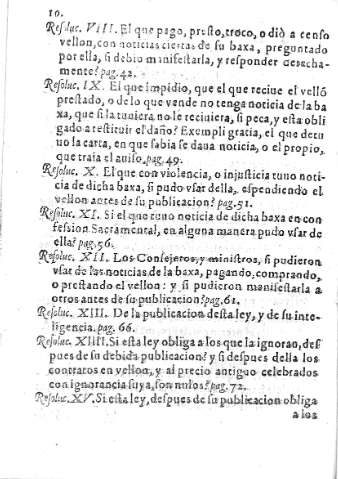 10.
Resoluc. VIII. El que pago, presto, troco, o diò a censo
vellon, con noticias ciertas de su baxa, preguntado
por ella, si debio manifestarla, y responder derecha-
mente? pag. 42.
Resoluc. IX. El que impidio, que el que recive el vellõ
prestado, o de lo que vende no tenga noticia de la ba
xa, que si la tuviera no le reciviera, si peca, y esta obli
gado a restituir el daño? Exempli gratia, el que detu
uo la carta, en que sabia se daua noticia, o el propio,
que traia el auiso. pag. 49.
Resoluc. X. El que con violencia, o injusticia tuuo noti-
cia de dicha baxa, si pudo vsar della, espendiendo el
vellon antes de su publicacion? pag. 51.
Resoluc. XI. Si el que tuuo noticia de dicha baxa en con
fession Sacramental, en alguna manera pudo vsar de
ella? pag. 56.
Resoluc. XII. Los Consejeros, y ministros, si pudieron
vsar de las noticias de la baxa, pagando, comprando,
o prestando el vellon: y si pudieron manifestarla a
otros antes de su publicacion? pag. 61.
Resoluc. XIII. De la publicacion desta ley, y de su inte-
ligencia. pag. 66.
Resoluc. XIIII. Si esta ley obliga a los que la ignoran, des
pues de su debida publicacion? y si despues della los
contratos en vellon, y al precio antiguo celebrados
con ignorancia suya, son nulos? pag. 72.
Resoluc. XV. Si esta ley, despues de su publicacion obliga
a los